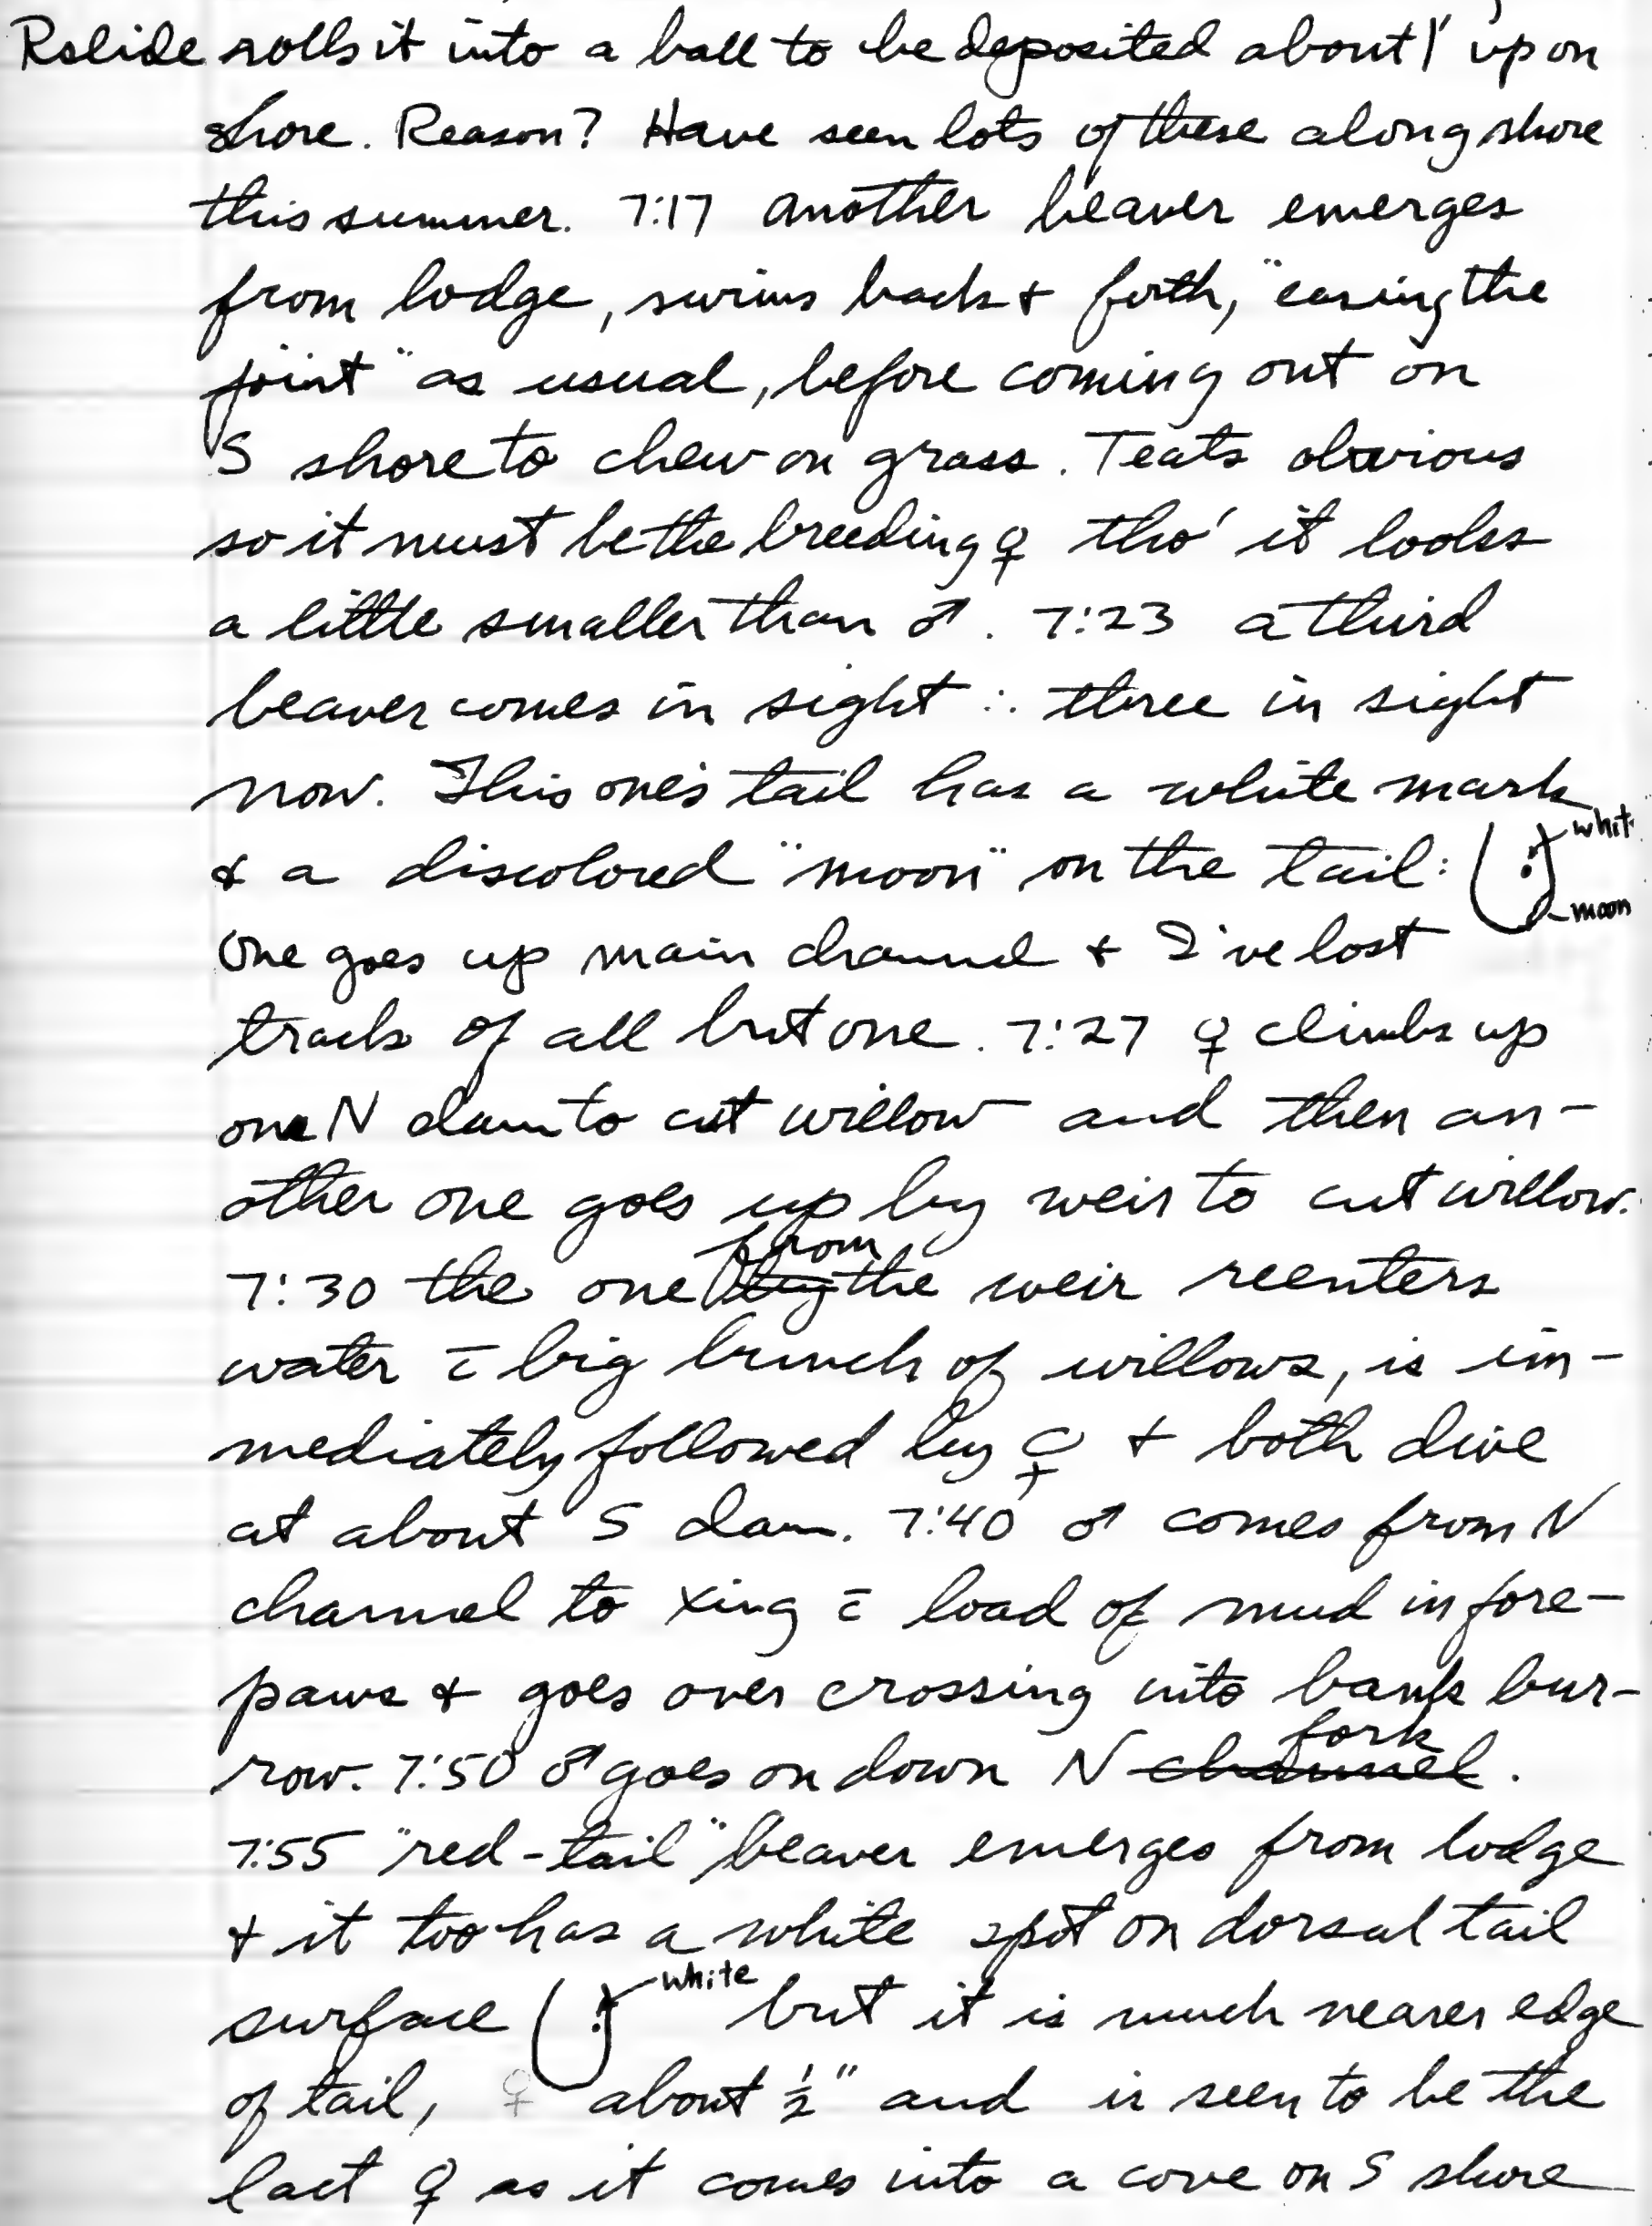 Rslide rolls it into a ball to be deposited about 1' up on
shore. Reason? Have seen lots of these along shore
this summer. 7:17 another beaver emerges
from lodge, swims back & forth, "easing the
joint" as usual, before coming out on
S shore to chew on grass. Teats obvious
so it must be the breeding ♀ tho' it looks
a little smaller than ♂. 7:23 a third
beaver comes in sight ∴ three in sight
now. This one's tail has a white mark
& a discolored "moon" on the tail:
whit
moon
One goes up main channel & I've lost
track of all but one. 7:27 ♀ climbs up
one N dam to cut willow and then an-
other one goes up by weir to cut willow.
from
7:30 the one by the weir reenters
water c̄ big bunch of willows, is im-
mediately followed by ♀ & both dive
at about S dam. 7:40 ♂ comes from N
channel to Xing c̄ load of mud in fore-
paws & goes over crossing into bank bur-
fork
row. 7:50 ♂ goes on down N channel.
7:55 "red-tail" beaver emerges from lodge
& it too has a white spot on dorsal tail
white
surface but it is much nearer edge
of tail, ♀ about ½" and is seen to be the
lact ♀ as it comes into a cove on S shore